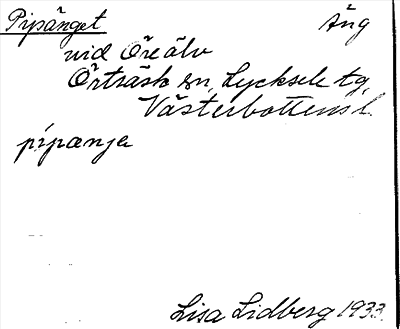 Pipänget Äng
vid Öre älv
Örträsk sn, Lycksele tg,
Västerbottens l.
pipanja
Lisa Lidberg 1933.